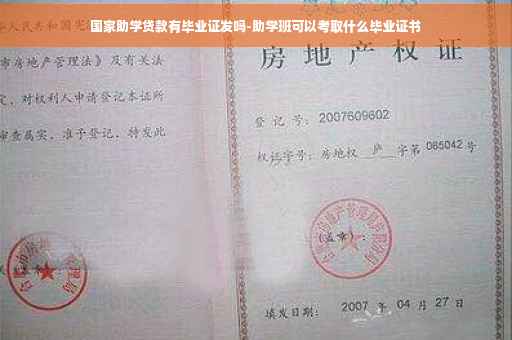 国家助学贷款有毕业证发吗-助学班可以考取什么毕业证书
人民共和国宪
市房地产管理法》及有关法
定，对权利人申请登记本证所
审查属实，准予登记，特发此
房地产权证
登记号：2007609602
权证字号：房地权 庐 字第 065042 号
（盖章）：
填发日期：2007 年 04 月 27 日